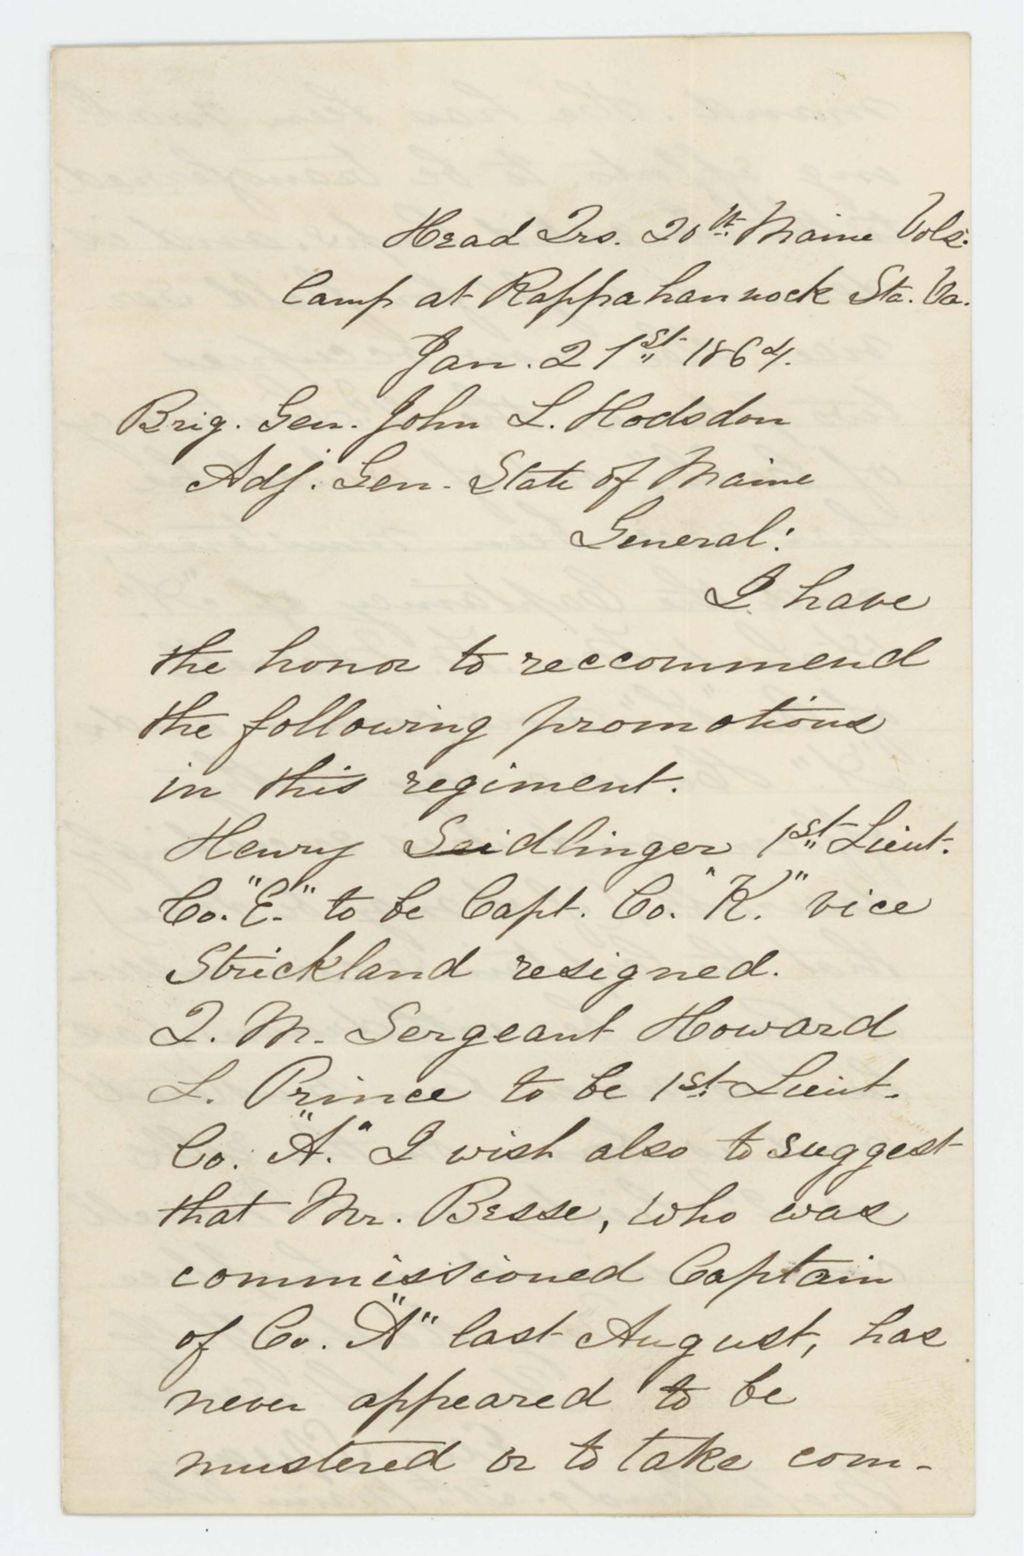 Head Qrs. 20th. Maine Vols.
Camp at Rappahannock Sta. Va.
Jan. 21st 1864.
Brig. Gen. John L. Hodsdon
Adj. Gen. State of Maine
General:
I have
the honor to reccommend
the following promotions
in this regiment.
Henry Seidlinger 1st Lieut.
Co. "E." to be Capt. Co. "K." vice
Strickland resigned.
Q. M. Sergeant Howard
L. Prince to be 1st. Lieut.
Co. "A." I wish also to suggest
that Mr. Besse, who was
commissioned Captain
of Co. "A" last August, has
never appeared to be
mustered or to take com-